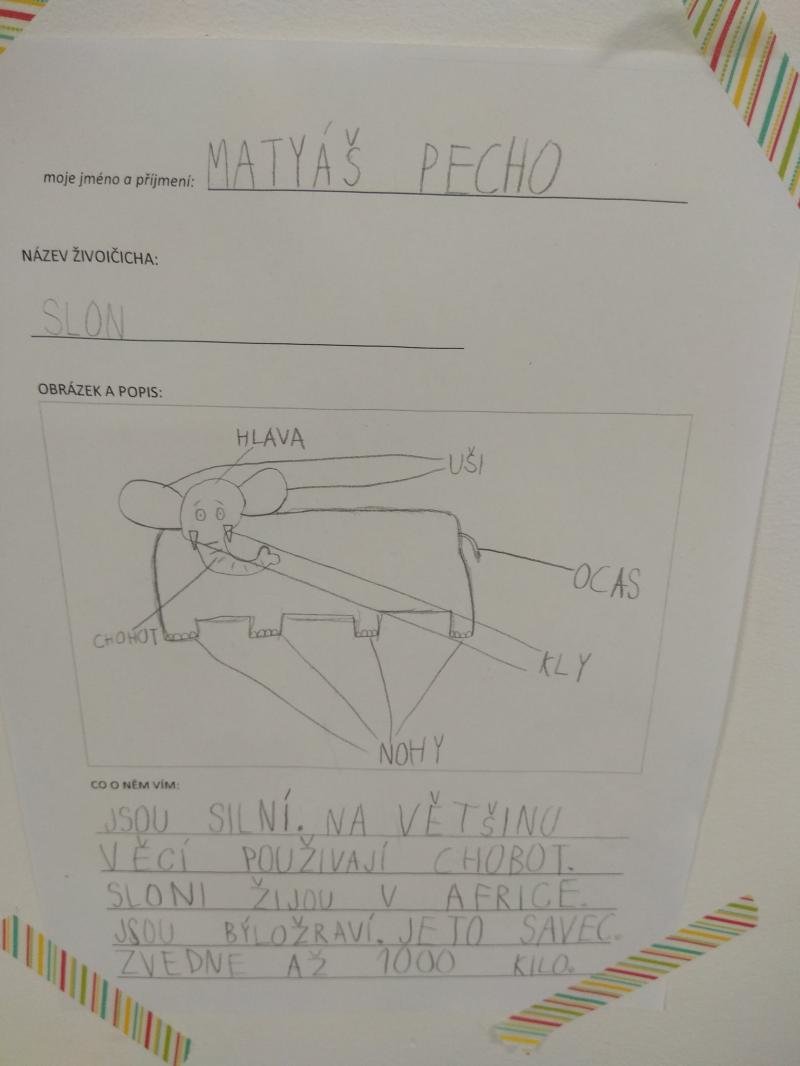 moje jméno a příjmení: MATYÁŠ PECHO
NÁZEV ŽIVOIČICHA:
SLON
OBRÁZEK A POPIS:
HLAVA
UŠI
OCAS
CHOHOT
KLY
NOHY
CO O NĚM VÍM:
JSOU SILNÍ. NA VĚTŠINU
VĚCÍ POUŽIVAJÍ CHOBOT.
SLONI ŽIJOU V AFRICE.
JSOU BÝLOŽRAVÍ. JE TO SAVEC.
ZVEDNE AŽ 1000 KILO.